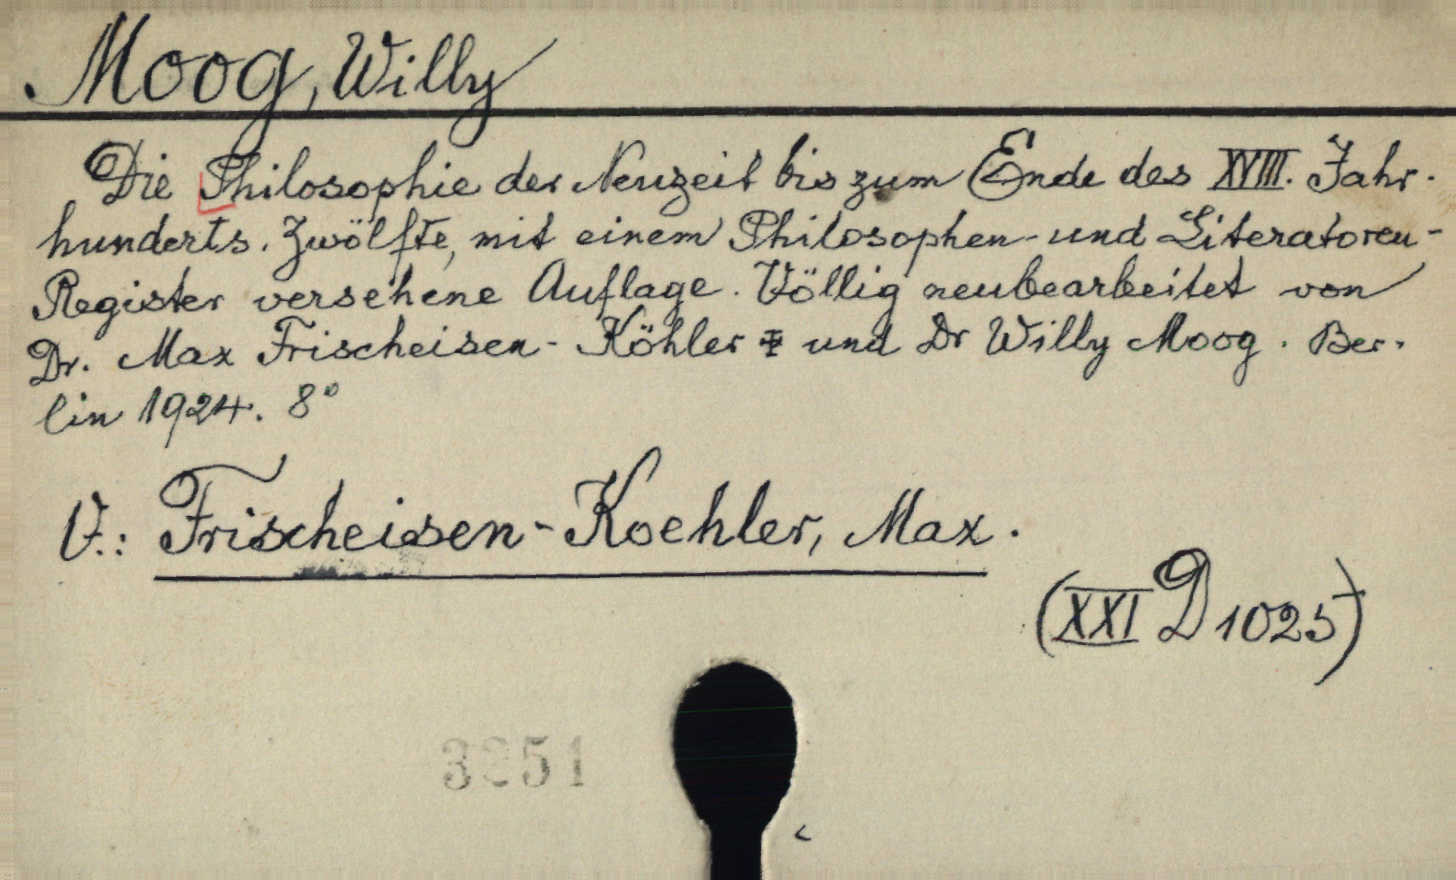 Moog, Willy
Die Philosophie der Neuzeit bis zum Ende des XVIII. Jahr-
hunderts. Zwölfte, mit einem Philosophen- und Literatoren-
Register versehene Auflage. Völlig neubearbeitet von
Dr. Max Frischeisen-Köhler ‡ und Dr Willy Moog. Ber-
lin 1924. 8°
V.: Frischeisen-Koehler, Max.
(XXI D 1025)
3251